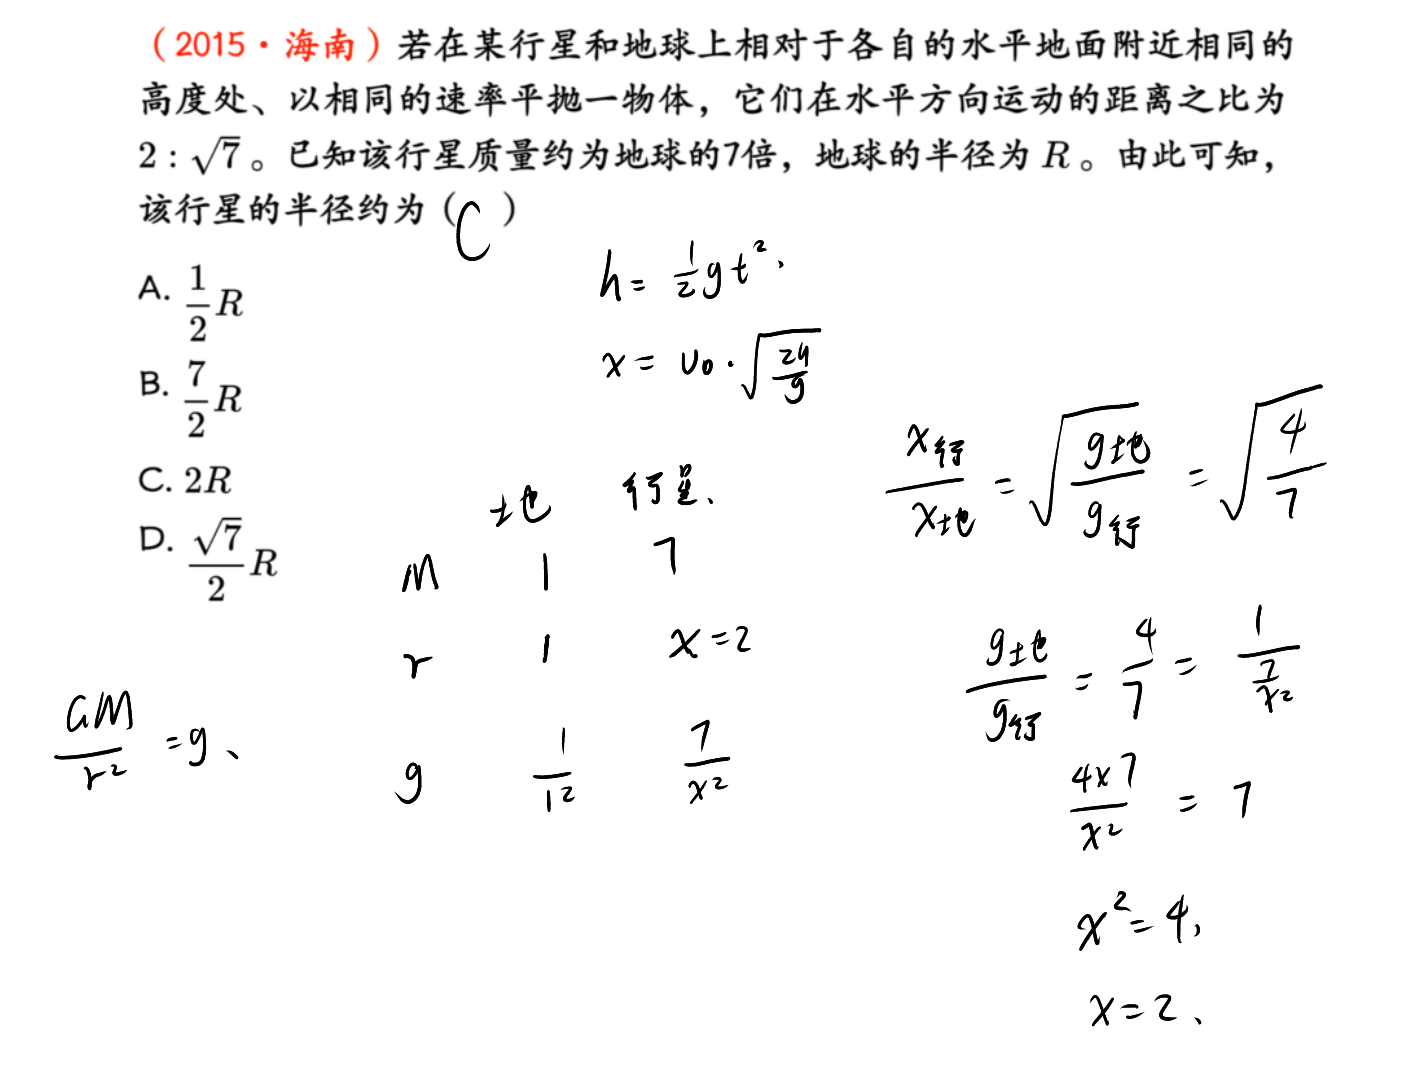 （2015·海南）若在某行星和地球上相对于各自的水平地面附近相同的
高度处、以相同的速率平抛一物体，它们在水平方向运动的距离之比为
2 : √7。已知该行星质量约为地球的7倍，地球的半径为 R。由此可知，
该行星的半径约为（C）
A. 1/2 R
B. 7/2 R
C. 2R
D. √7/2 R
h = 1/2 g t²
x = v₀ · √(2h/g)
x行/x地 = √(g地/g行) = √(4/7)
地 行星
M 1 7
r 1 x=2
g 1/1² 7/x²
GM/r² = g
g地/g行 = 4/7 = 1/(7/x²)
4×7/x² = 7
x² = 4
x = 2